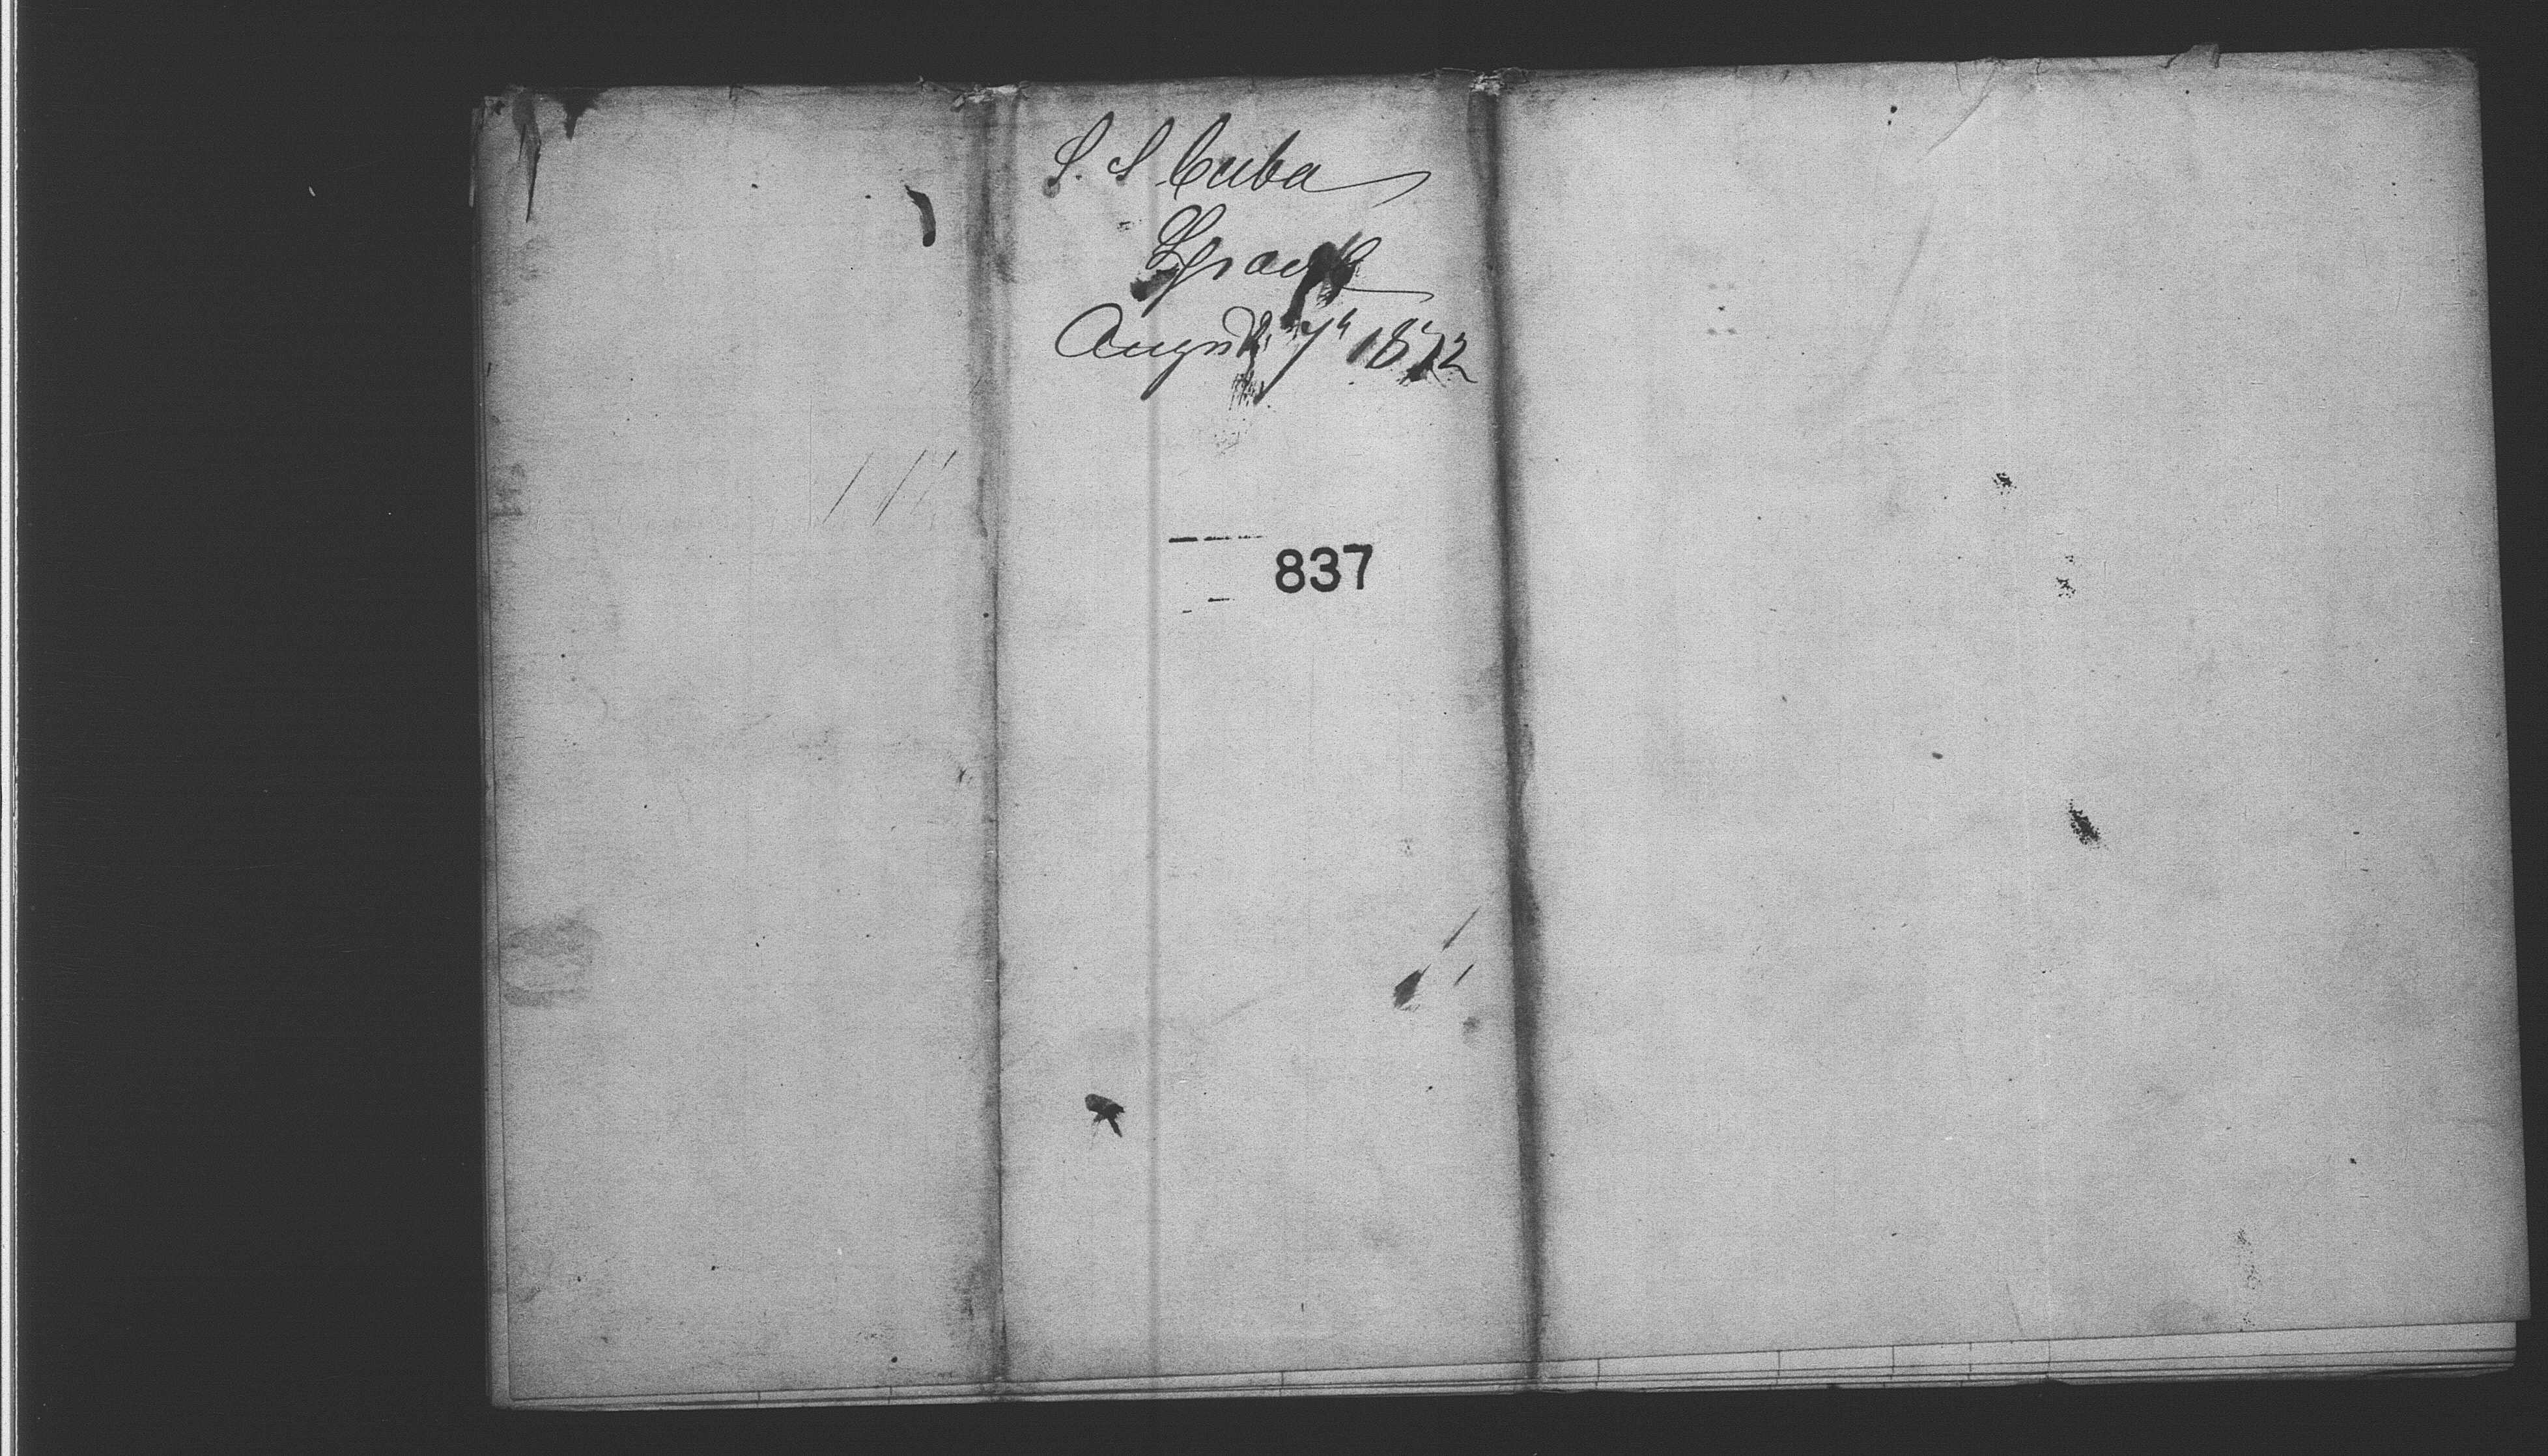 S. S Cuba
August 7th 1872
837